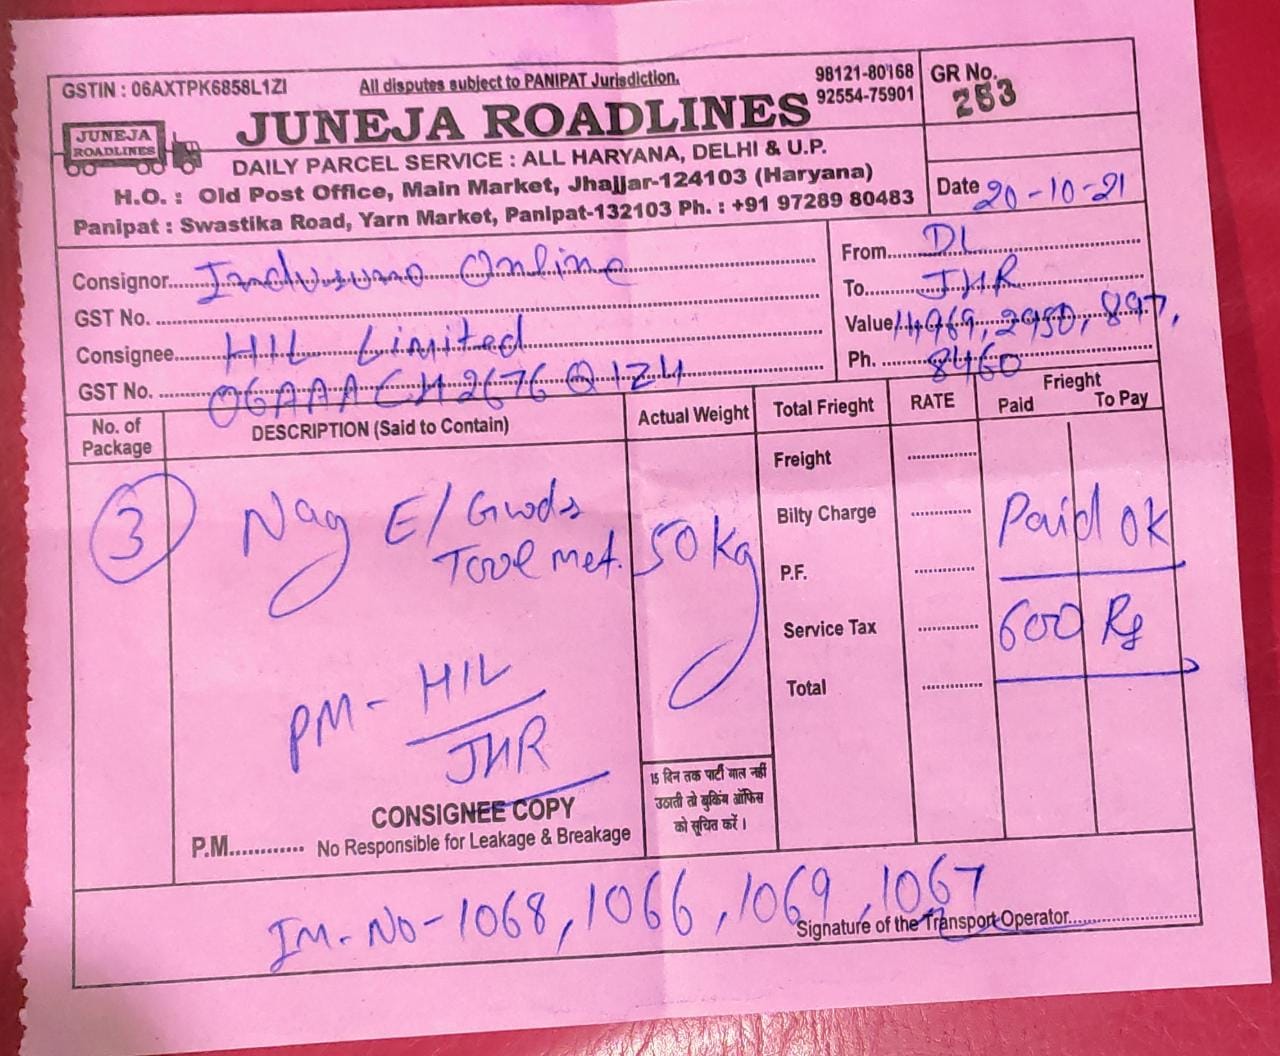 GSTIN : 06AXTPK6858L1ZI
All disputes subject to PANIPAT Jurisdiction.
98121-80168
92554-75901
GR No.
283
JUNEJA ROADLINES
JUNEJA ROADLINES
DAILY PARCEL SERVICE : ALL HARYANA, DELHI & U.P.
H.O. : Old Post Office, Main Market, Jhajjar-124103 (Haryana)
Panipat : Swastika Road, Yarn Market, Panipat-132103 Ph. : +91 97289 80483
Date 20-10-21
Consignor Online
GST No.
Consignee HIL Limited
GST No. 06AAACH2676Q1Z4
From DL
To JHR
Value 14969, 2950, 897,
Ph. 8460
No. of Package
DESCRIPTION (Said to Contain)
Actual Weight
Total Frieght
RATE
Frieght
Paid
To Pay
3
Nag E/Goods
Tool met.
50 Kg
Freight
Bilty Charge
P.F.
Service Tax
Total
Paid OK
600 Rs
PM - HIL
JHR
CONSIGNEE COPY
P.M............ No Responsible for Leakage & Breakage
15 दिन तक पार्टी माल नहीं
उठाती तो बुकिंग ऑफिस
को सूचित करें ।
No - 1068, 1066, 1069, 1067
Signature of the Transport Operator